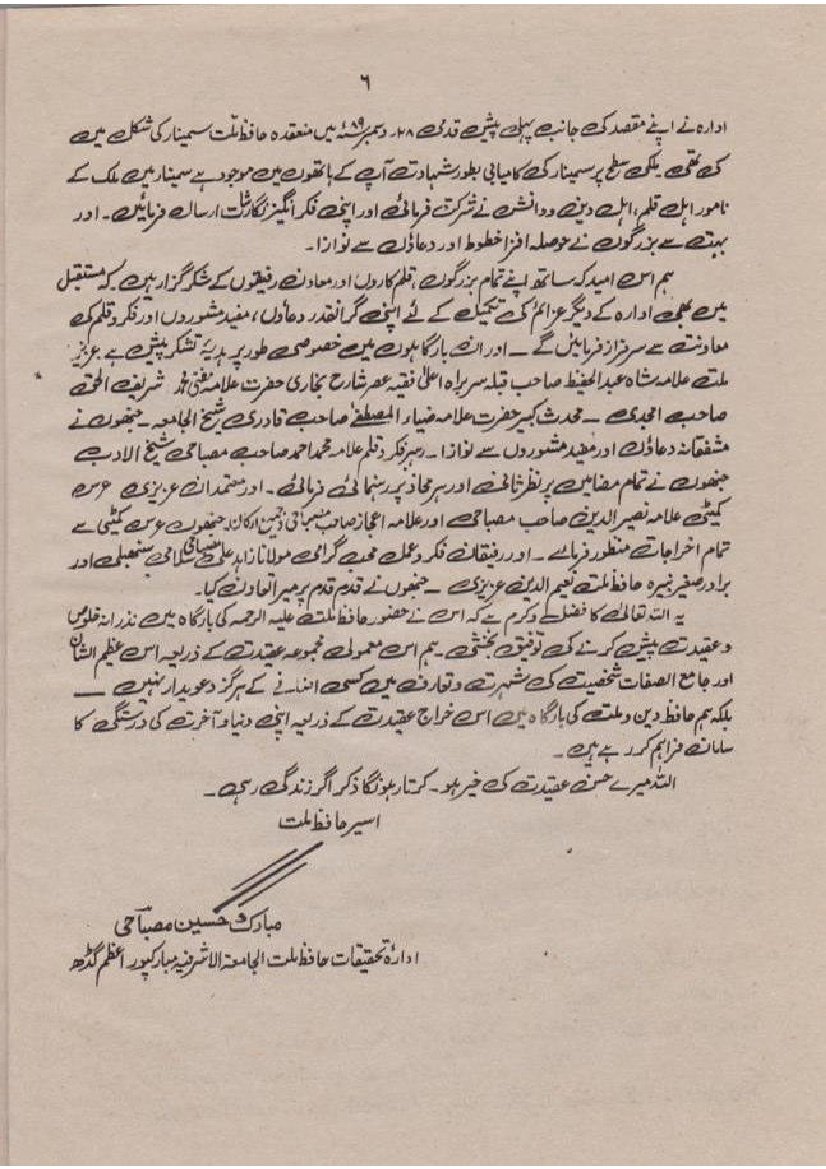 ٦
ادارہ نے اپنے مقصد کی جانب پہلی پیش قدمی ۲۸ر دسمبر ۸۹ء میں منعقدہ حافظ ملت سیمینار کی شکل میں
کی تھی۔ ملکی سطح پر سمینار کی کامیابی بطور شہادت آپ کے ہاتھوں میں موجود ہے سمینار میں ملک کے
نامور اہل قلم، اہل دین و دانش نے شرکت فرمائی اور اپنی فکر انگیز نگارشات ارسال فرمائیں۔ اور
بہت سے بزرگوں نے حوصلہ افزا خطوط اور دعاؤں سے نوازا۔
ہم اس امید کے ساتھ اپنے تمام بزرگوں، قلم کاروں اور معاون رفیقوں کے شکر گزار ہیں کہ مستقبل
میں بھی ادارہ کے دیگر عزائم کی تکمیل کے لئے اپنی گرانقدر دعاؤں، مفید مشوروں اور فکر و قلم کی
معاونت سے سرفراز فرمائیں گے ۔ اور ان بارگاہوں میں خصوصی طور پر ہدیۂ تشکر پیش ہے عزیز
ملت علامہ شاہ عبد الحفیظ صاحب قبلہ سربراہ اعلیٰ فقیہ عصر شارح بخاری حضرت علامہ مفتی محمد شریف الحق
صاحب امجدی ۔ محدث کبیر حضرت علامہ ضیاء المصطفےٰ صاحب قادری شیخ الجامعہ ۔ جنھوں نے
مشفقانہ دعاؤں اور مفید مشوروں سے نوازا۔ رہبر فکر و قلم علامہ محمد احمد صاحب مصباحی شیخ الادب
جنھوں نے تمام مضامین پر نظر ثانی اور ہر محاذ پر رہنمائی فرمائی۔ اور معتمدان عزیزی عرس
کمیٹی علامہ نصیر الدین صاحب مصباحی اور علامہ اعجاز صاحب مصباحی و جمیع ارکان جنھوں عرس کمیٹی سے
تمام اخراجات منظور فرمائے ۔ اور رفیقان فکر و عمل محب گرامی مولانا زاہد علی مصباحی سلامی سنبھلی اور
برادر صغیر نبیرہ حافظ ملت نعیم الدین عزیزی ۔ جنھوں نے قدم قدم پر میرا تعاون کیا۔
یہ اللہ تعالیٰ کا فضل و کرم ہے کہ اس نے حضور حافظ ملت علیہ الرحمہ کی بارگاہ میں نذرانہ خلوص
و عقیدت پیش کرنے کی توفیق بخشی۔ ہم اس معمولی مجموعہ عقیدت کے ذریعہ اس عظیم الشان
اور جامع الصفات شخصیت کی شہرت و تعارف میں کسی اضافے کے ہرگز دعویدار نہیں ــــ
بلکہ ہم حافظ دین و ملت کی بارگاہ میں اس خراج عقیدت کے ذریعہ اپنی دنیا و آخرت کی درستگی کا
سامان فراہم کر رہے ہیں۔
اللہ میرے حسن عقیدت کی خیر ہو۔ کرتا رہونگا ذکر اگر زندگی رہی۔
اسیر حافظ ملت
مبارک حسین مصباحی
ادارۂ تحقیقات حافظ ملت الجامعۃ الاشرفیہ مبارکپور اعظم گڈھ